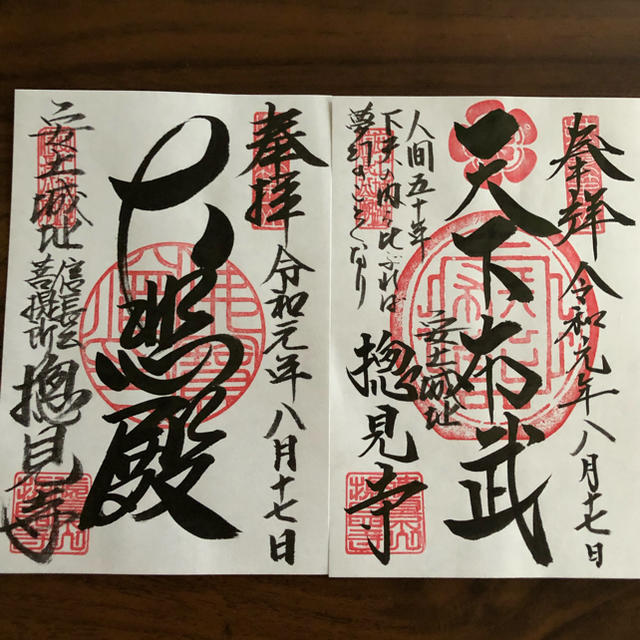 奉拝
天下布武
令和元年八月十七日
安土城址
人間五十年
下天の内を比ぶれば
夢幻のごとくなり
摠見寺
奉拝
大悲殿
令和元年八月十七日
安土城址
信長公
菩提所
摠見寺